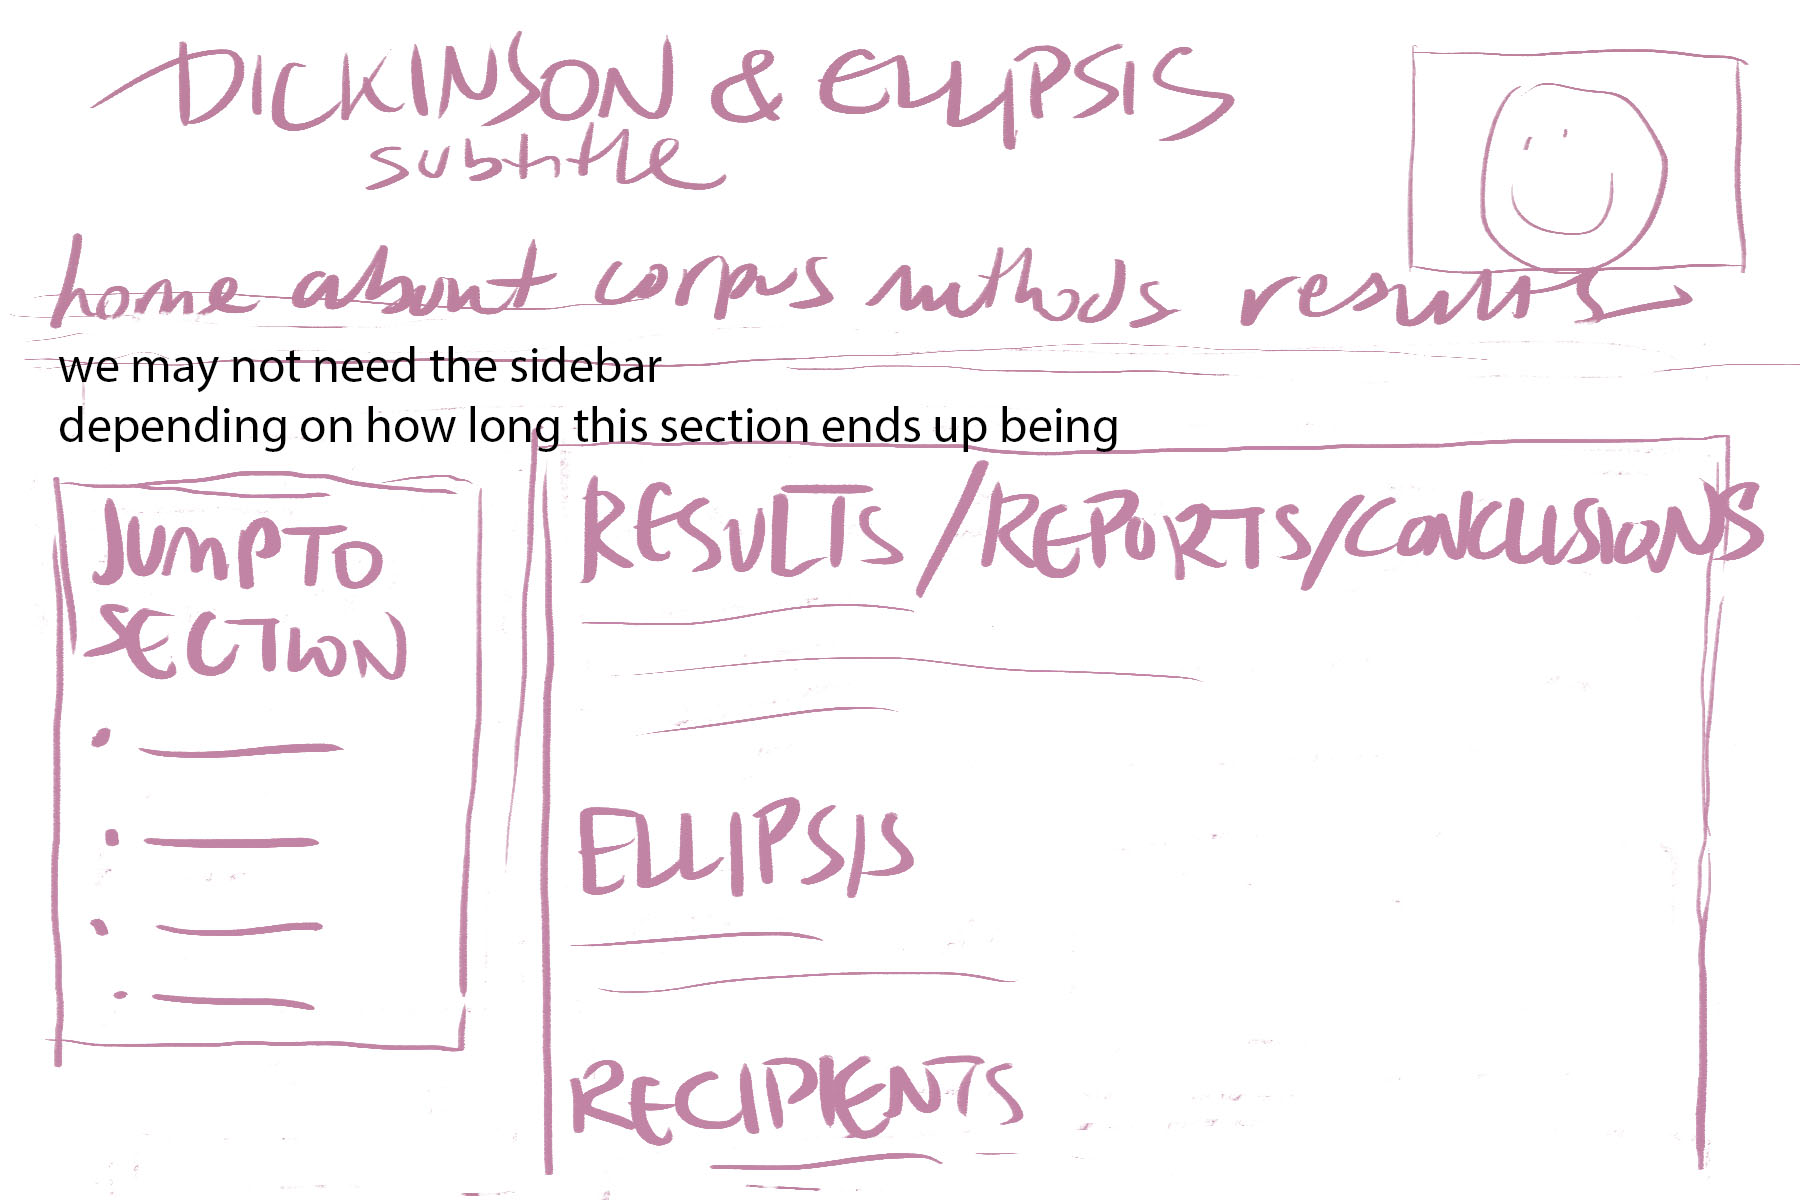 DICKINSON & ELLIPSIS
subtitle
home about corpus methods results
we may not need the sidebar
depending on how long this section ends up being
JUMP TO
SECTION
RESULTS/REPORTS/CONCLUSIONS
ELLIPSIS
RECIPIENTS